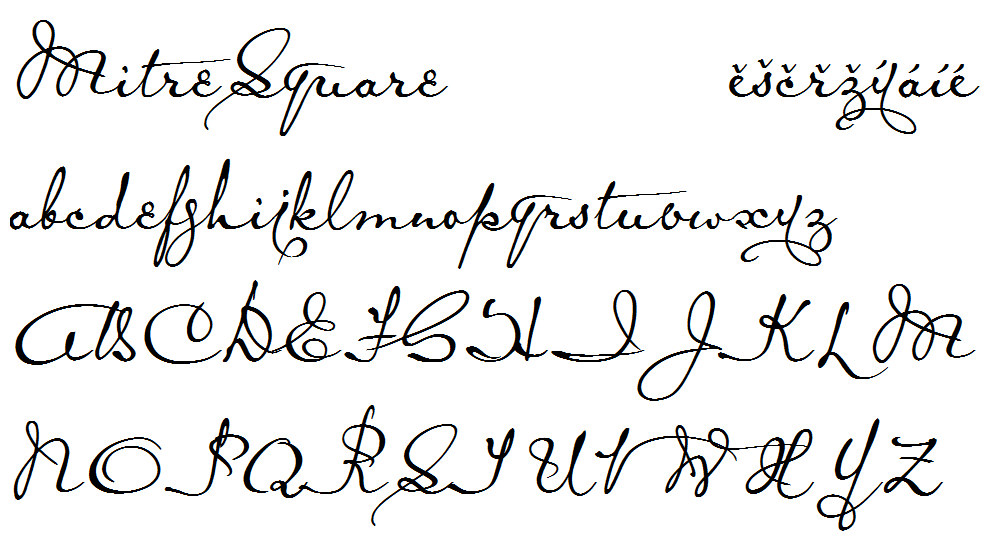 Mitre Square ěščřžýáíé
abcdefghijklmnopqrstuvwxyz
ABCDEFGHIJKLM
NOPQRSTUVWXYZ